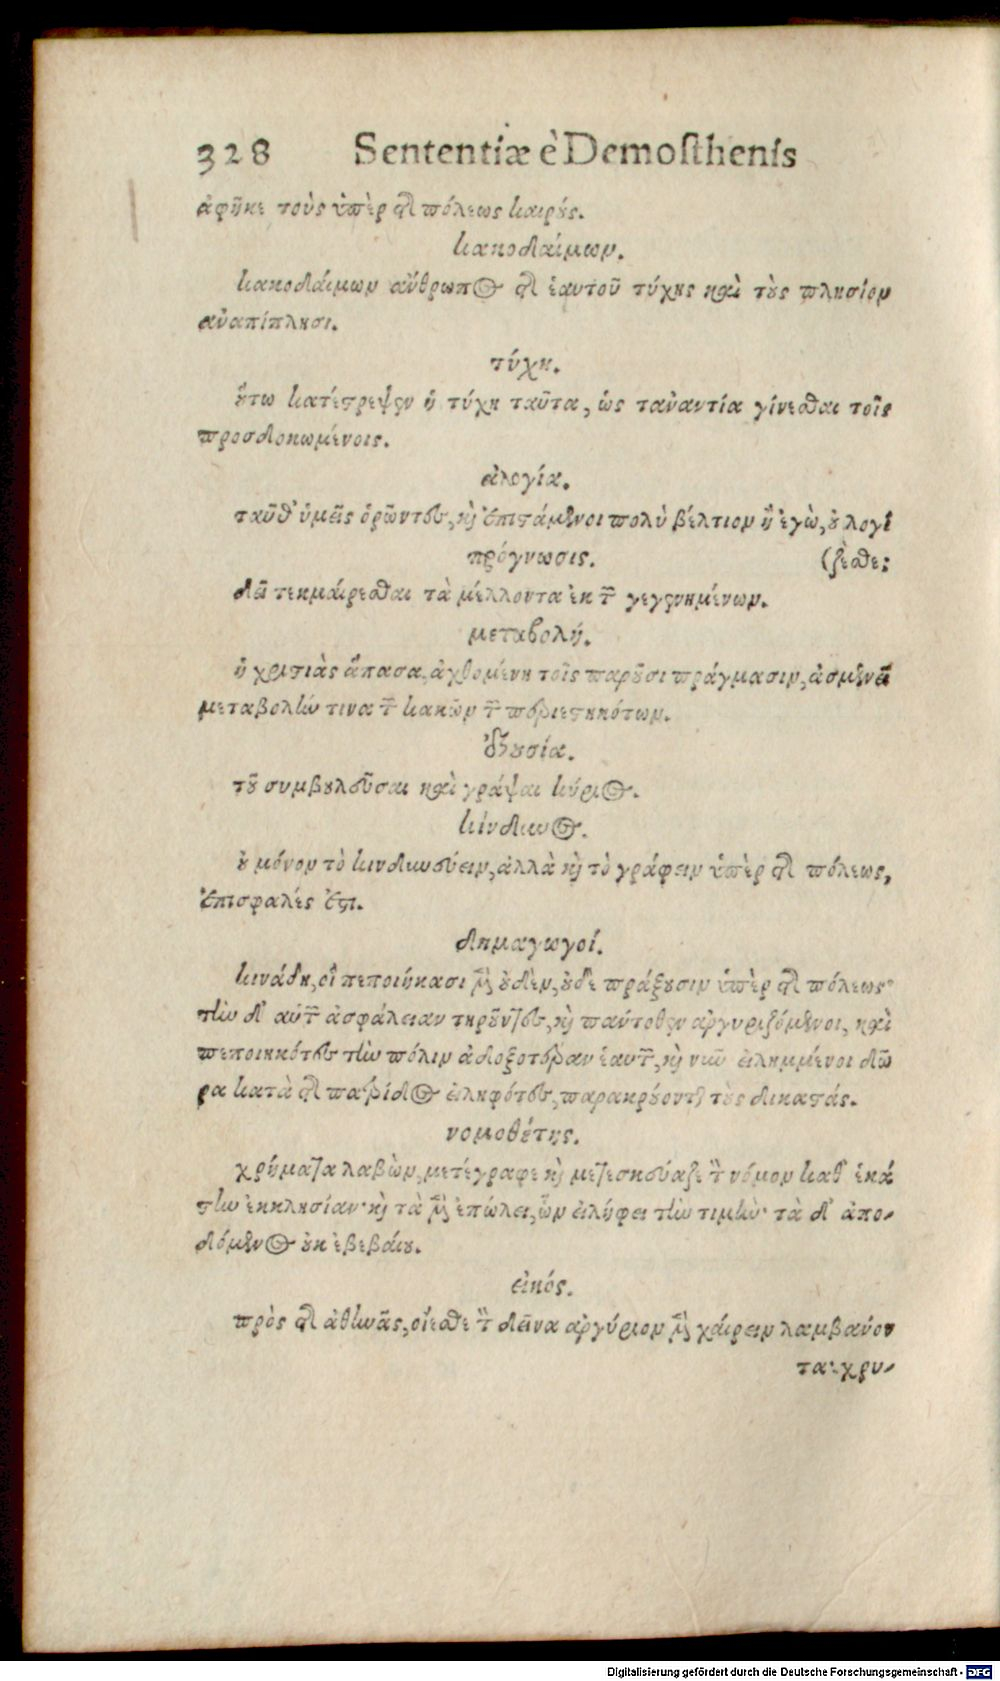 328 Sententiæ è Demosthenis
ἀφῆκε τοὺς ὑπὲρ τῆς πόλεως καιρούς.
κακοδαίμων.
κακοδαίμων ἄνθρωπος τῆς ἑαυτοῦ τύχης καὶ τοὺς πλησίον
ἀναπίπλησι.
τύχη.
οὕτω κατέστρεψεν ἡ τύχη ταῦτα, ὡς τἀναντία γίνεσθαι τοῖς
προσδοκωμένοις.
ἀλογία.
ταῦθ' ὑμεῖς ὁρῶντες, καὶ ἐπιστάμενοι πολὺ βέλτιον ἢ ἐγὼ, οὐ λογί
πρόγνωσις. (ζεσθε;
δεῖ τεκμαίρεσθαι τὰ μέλλοντα ἐκ τῶν γεγενημένων.
μεταβολή.
ἡ χρηστιὰς ἅπασα, ἀχθομένη τοῖς παροῦσι πράγμασιν, ἀσμενεῖ
μεταβολὴν τινα τῶν κακῶν τῶν περιεστηκότων.
ἐξουσία.
τοῦ συμβουλεῦσαι καὶ γράψαι κύριος.
κίνδυνος.
οὐ μόνον τὸ κινδυνεύειν, ἀλλὰ καὶ τὸ γράφειν ὑπὲρ τῆς πόλεως,
ἐπισφαλές ἐστι.
δημαγωγοί.
κινάδη, οἳ πεποιήκασι μὲν οὐδὲν, οὐδὲ πράξουσιν ὑπὲρ τῆς πόλεως·
τὴν δ' αὑτῶν ἀσφάλειαν τηροῦντες, καὶ πανταχόθεν ἀργυριζόμενοι, καὶ
πεποιηκότες τὴν πόλιν ἀδοξοτέραν ἑαυτῶν, καὶ νῦν εἰλημμένοι δῶ
ρα κατὰ τῆς πατρίδος εἰληφότες, παρακρούονται τοὺς δικαστάς.
νομοθέτης.
χρήματα λαβὼν, μετέγραφε καὶ μετεσκεύαζε τὸν νόμον καθ' ἑκά
στην ἐκκλησίαν· καὶ τὰ μὲν ἐπώλει, ὧν εἰλήφει τὴν τιμὴν· τὰ δ' ἀπο-
δόμενος οὐκ ἐβεβαίου.
εἰκός.
πρὸς τῆς ἀθηνᾶς, οἴεσθε τὸν δεῖνα ἀργύριον μὲν χαίρειν λαμβάνον
τα: χρυ-
Digitalisierung gefördert durch die Deutsche Forschungsgemeinschaft - DFG